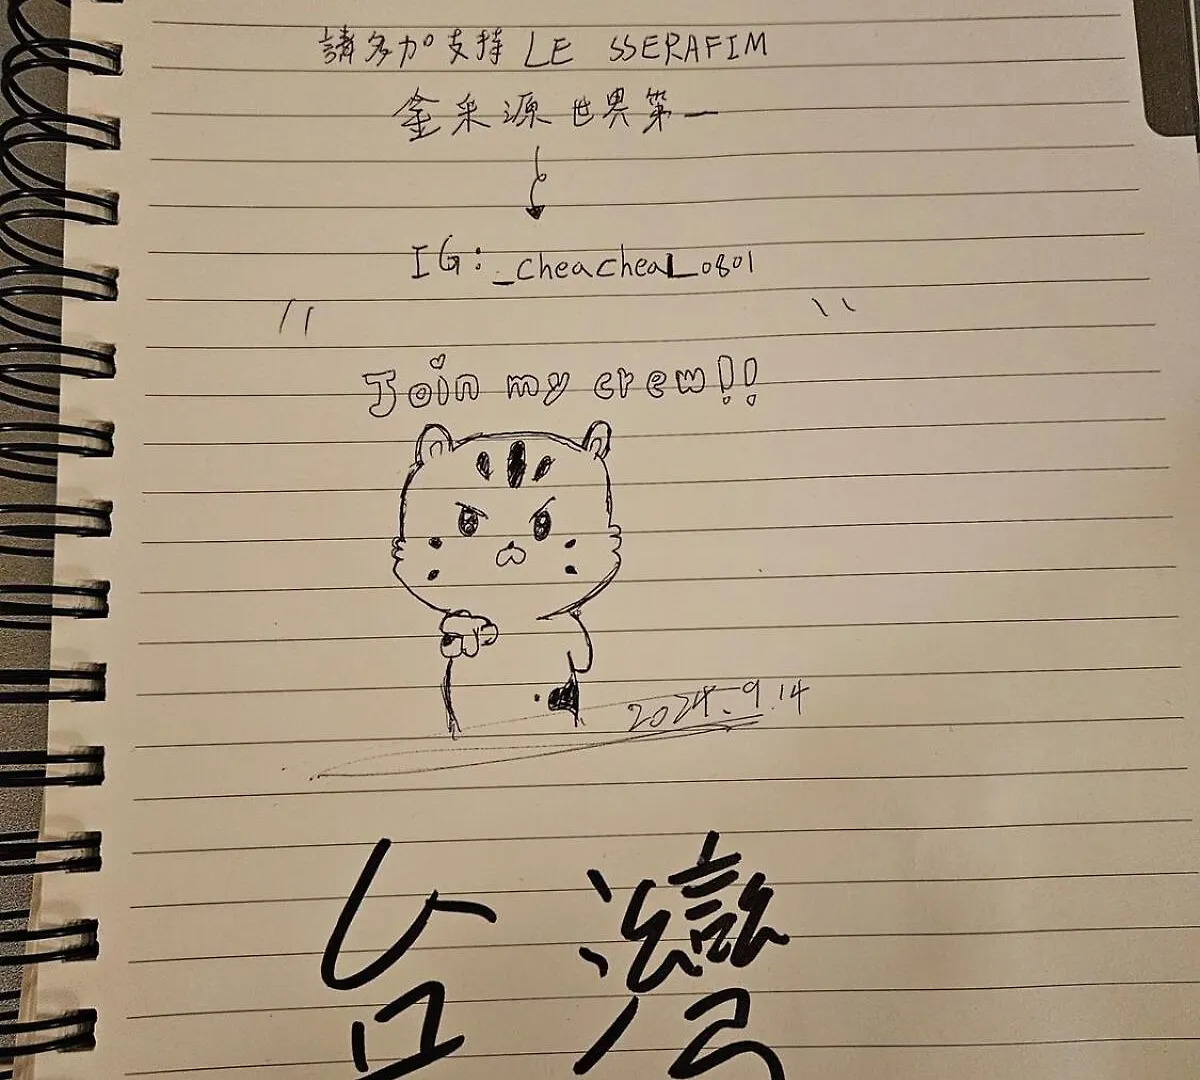 請多加支持 LE SSERAFIM
金采源世界第一
IG:_cheacheal_0801
Join my crew!!
2024.9.14
台灣